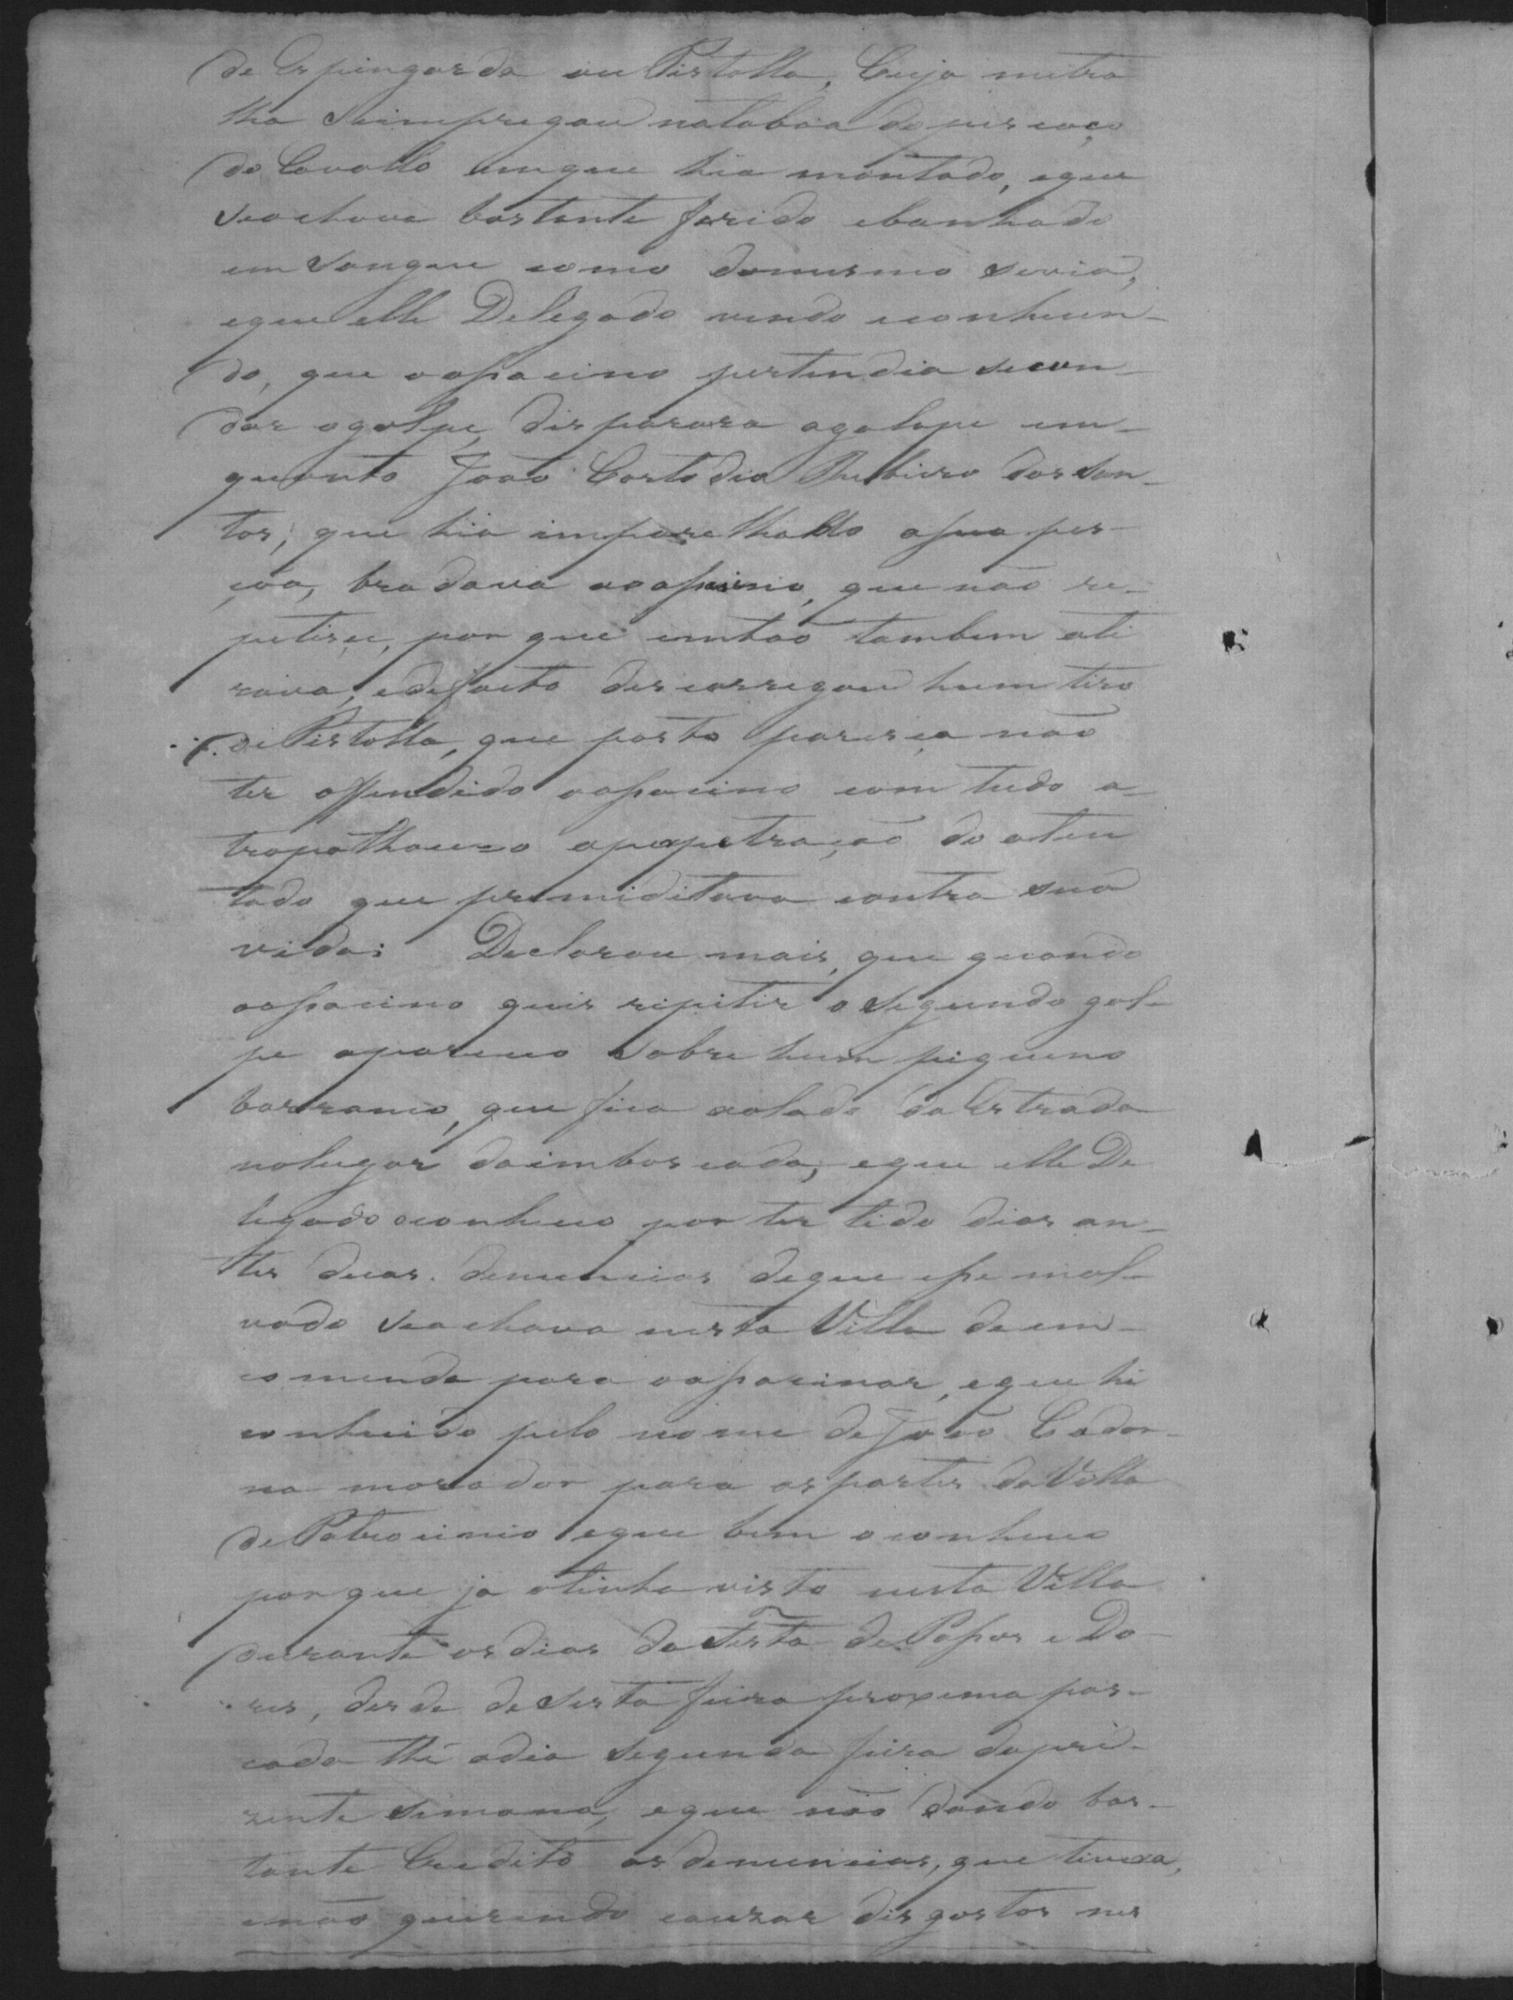 de Espingarda ou Pistolla, Cuja metra
lha Seimpregou nataboa do piscoço
do Cavallo emque hia montado, eque
Seachava bastante ferido ebanhado
em Sangue como domesmo Sevia,
eque elle Delegado vendo econhecen-
do, que oaçacino pertendia Secon-
dar ogolpe, disparara agalope em-
quanto João Costodio Ribeiro dos San-
tos, que hia imparelhado aSua pes-
çoa, bradava aoaçacino, que não re-
petiçe, por que emtão tambem ati
rava, edefacto descarregou hum tiro
de Pistolla, que posto pareça não
ter offendido oaçacino com tudo a-
trapalhouco aperpetração do aten
tado que premiditava contra Sua
vida: Declarou mais, que quando
oaçacino quis ripitir o Segundo gol-
pe apareceo Sobre hum piqueno
barranco, que fica aolado daEstrada
nolugar daimboscada, eque elle De
legado oconheceo por ter tido dias an-
tes duas denuncias deque eçe mal-
vado Seachava nesta Villa de em-
comenda para oaçacinar, eque hé
conhecido pelo nome deJoão Cador-
na morador para as partes da Villa
de Patrocinio eque bem oconheceo
porque ja otinha visto nesta Villa
durante os dias da Festa de Paços e Do-
res, desde deSesta feira proxima pas-
cada thé odia Segunda feira dapre-
zente Semana, eque não dando bas-
tante Credito as denuncias, que tivera,
enão querendo cauzar disgostos nes